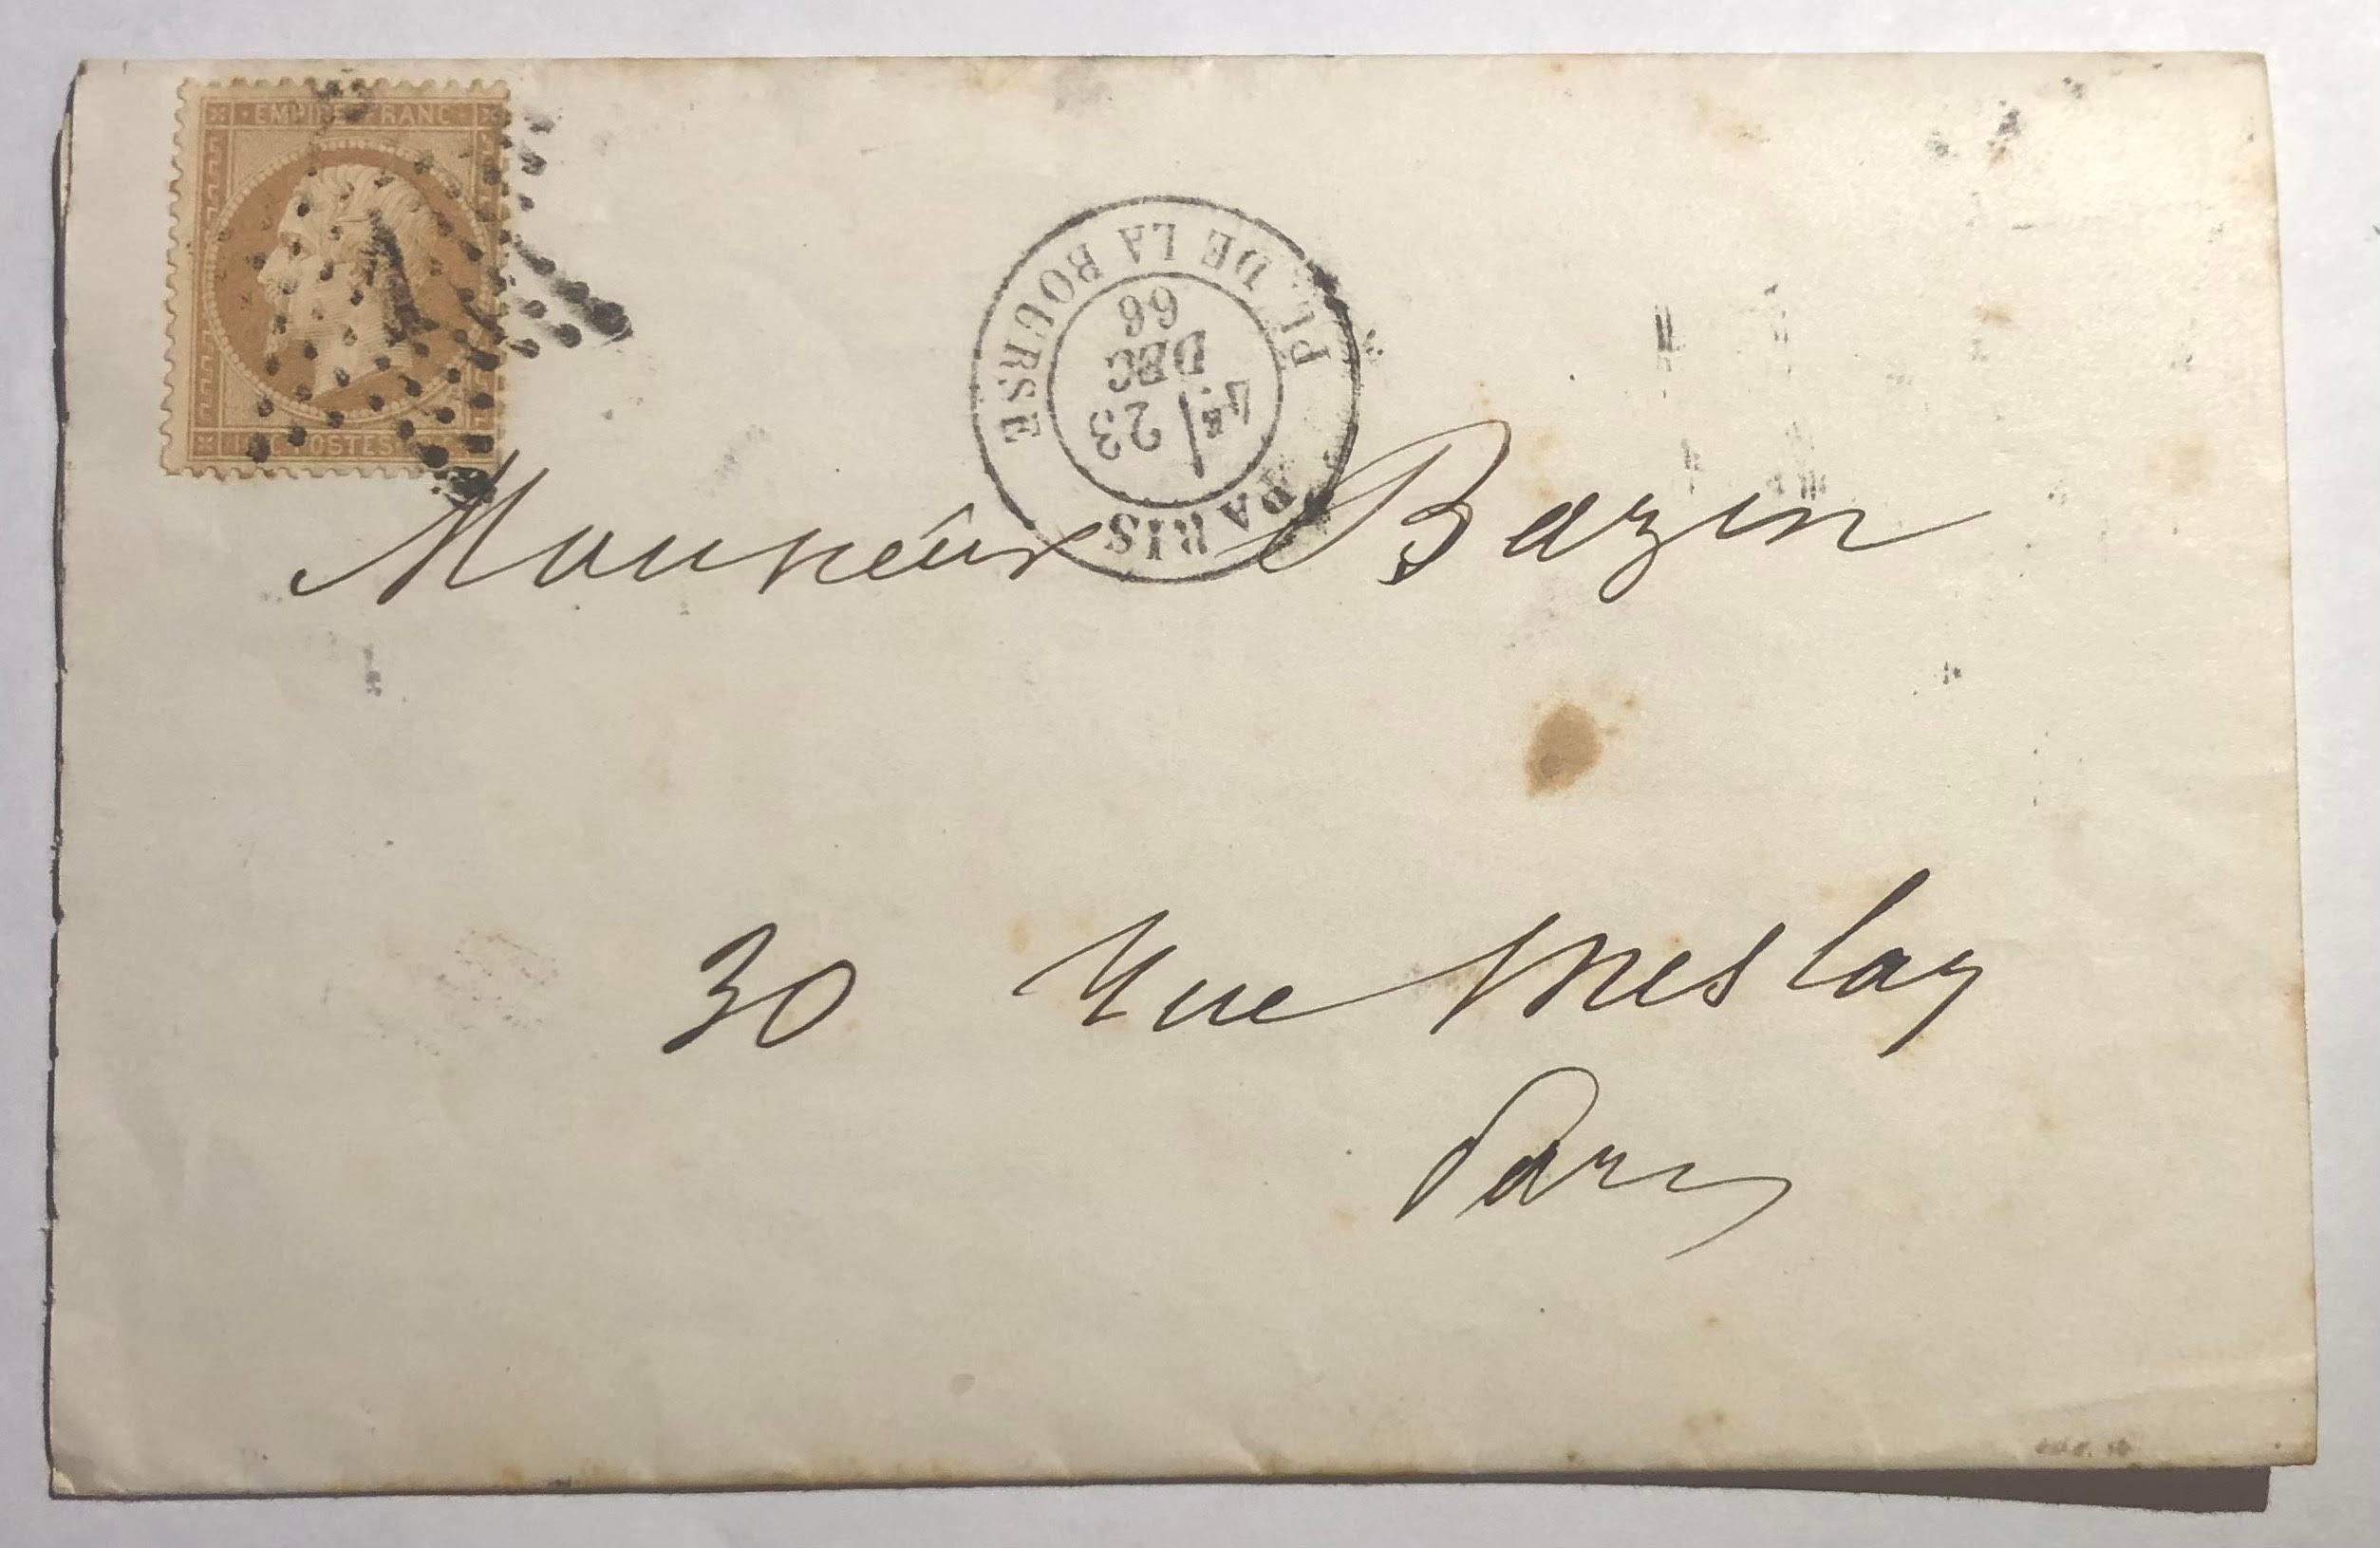 EMPIRE FRANC
POSTES
1
PARIS
4E 23
DEC
66
PL. DE LA BOURSE
Monsieur Bazin
30 Rue Meslay
Paris